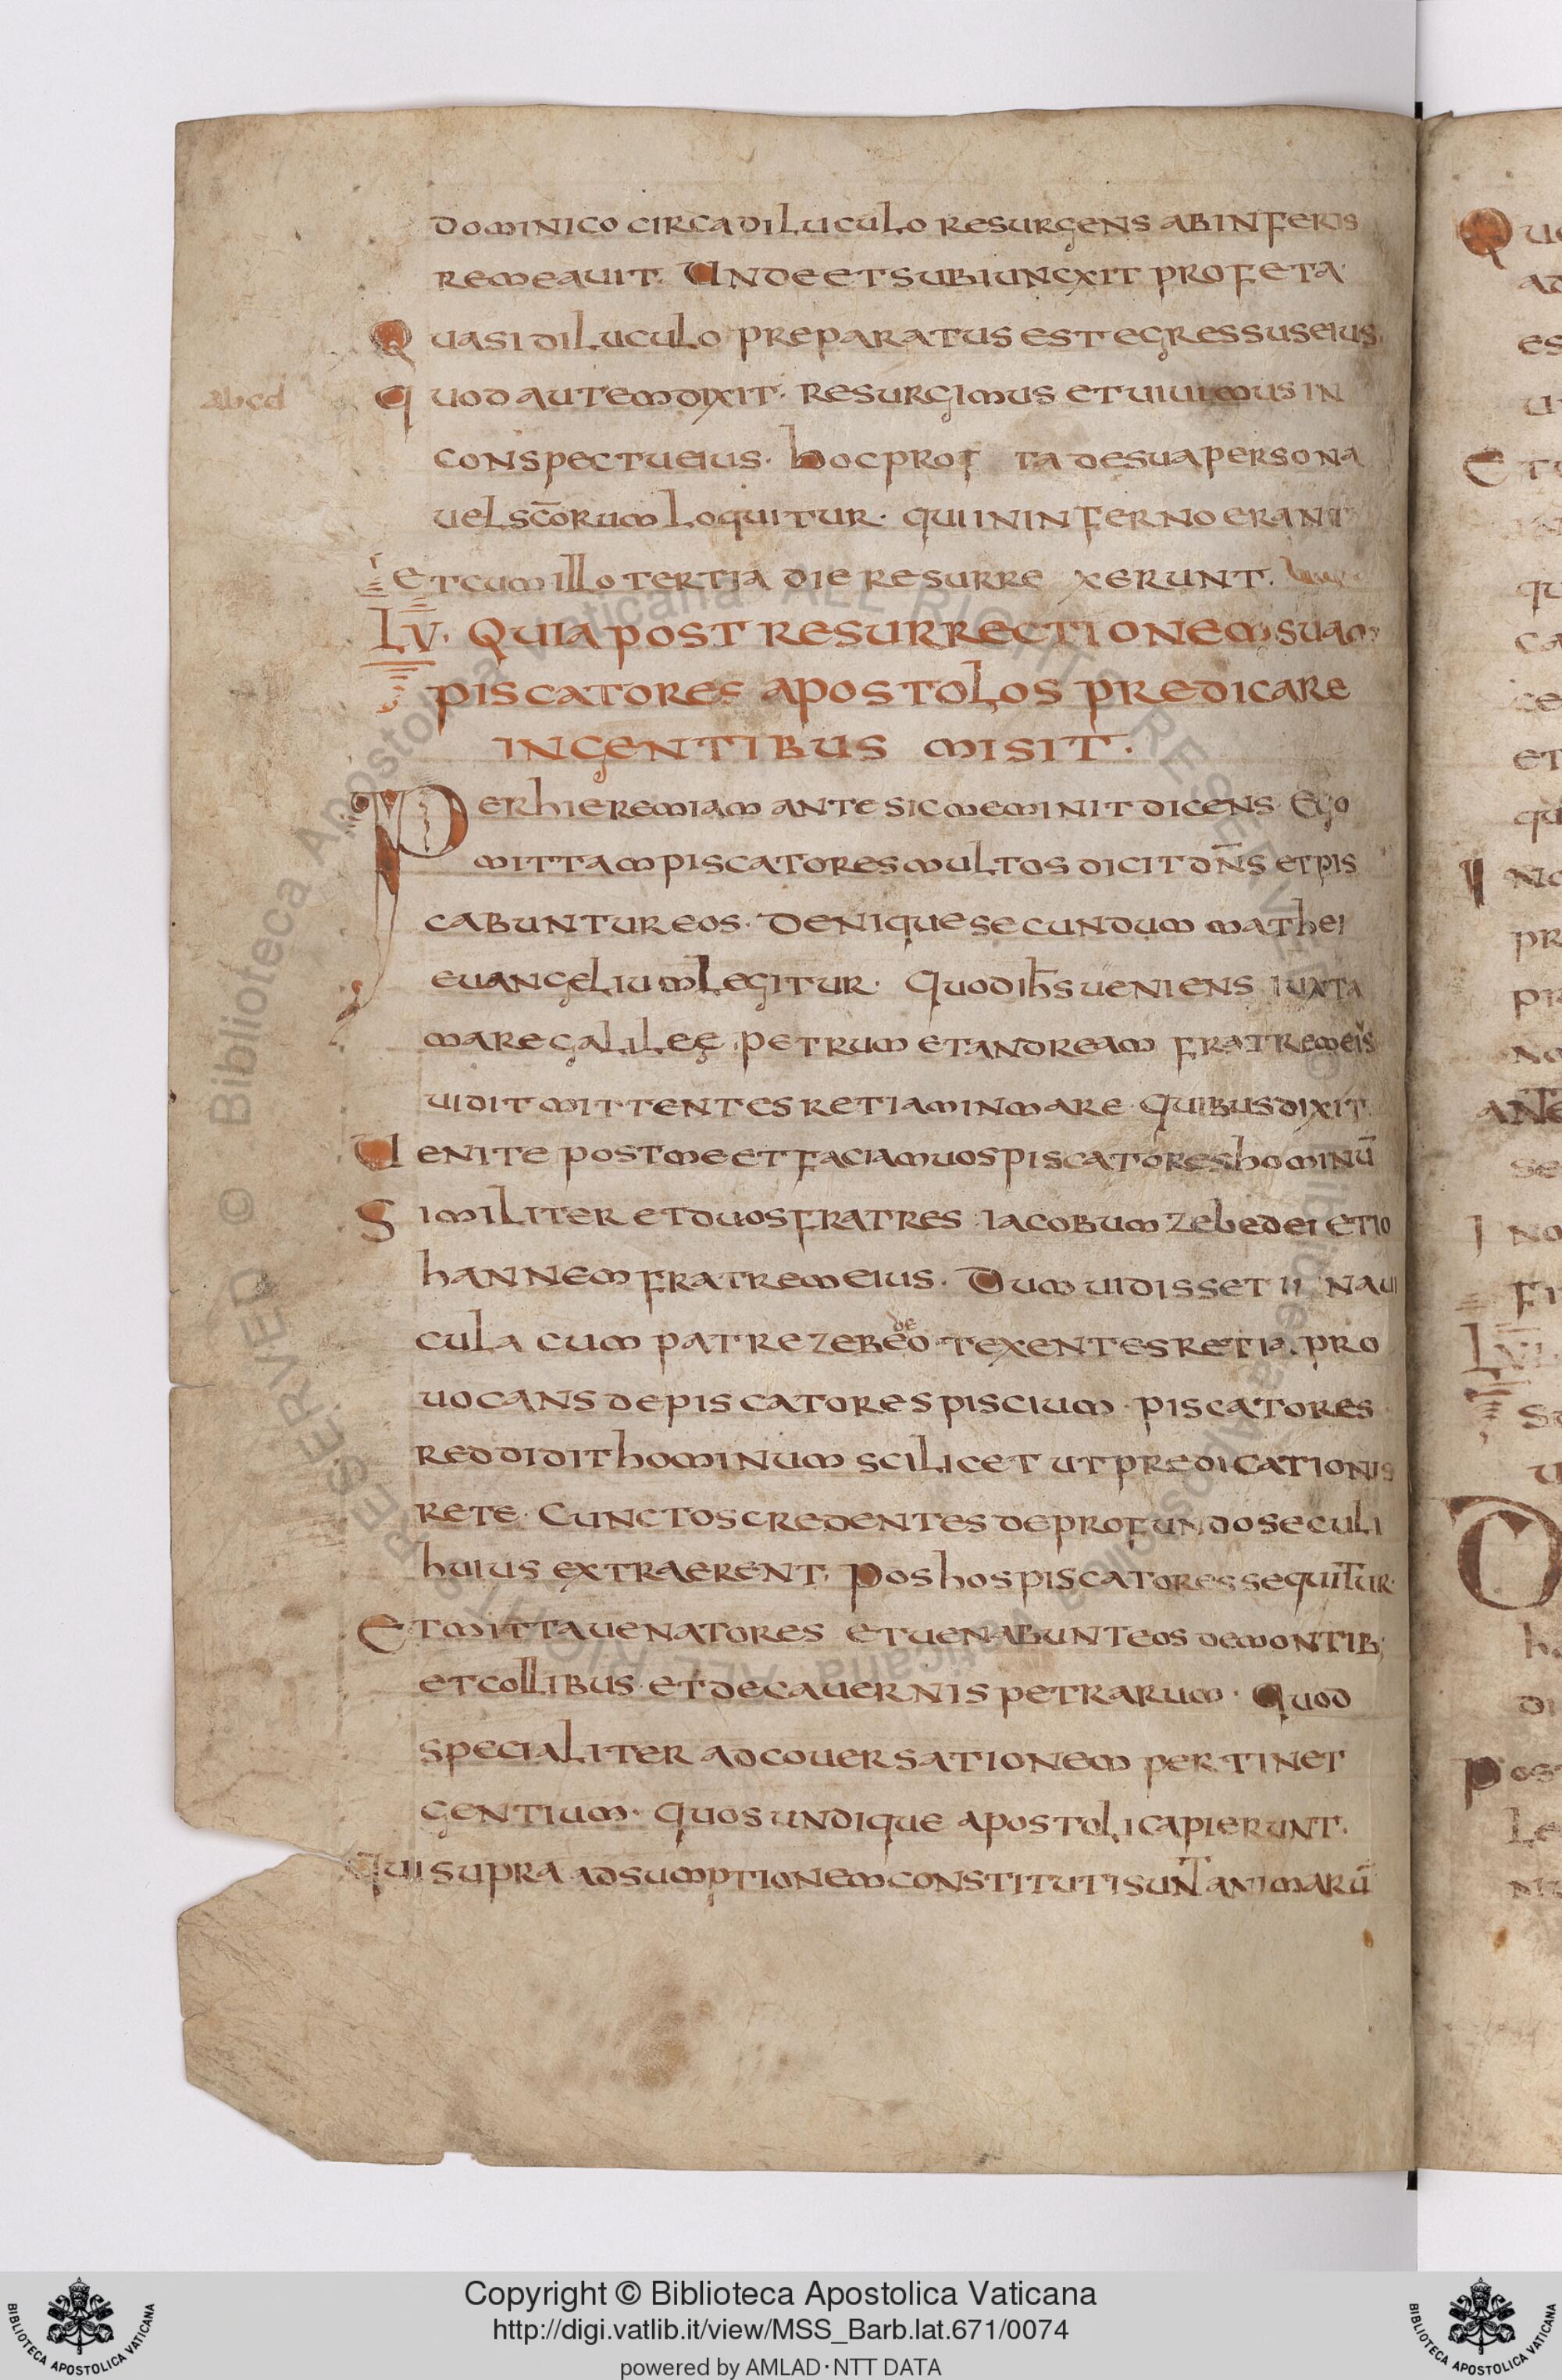 dominico circa diluculo resurgens ab inferis
remeauit. Unde et subiuncxit profeta.
Quasi diluculo preparatus est egressus eius.
abcd
Quod autem dixit. resurgimus et uiuimus in
conspectu eius. hoc prof ta de sua persona
uel sc̄orum loquitur. qui in inferno erant
et cum illo tertia die resurre xerunt.
LV. Quia post resurrectionem suam
piscatores apostolos predicare
in gentibus misit.
Per hieremiam ante sic meminit dicens. Ego
mittam piscatores multos dicit dn̄s et pis
cabuntur eos. Denique secundum mathei
euangelium legitur. Quod ih̄s ueniens iuxta
mare galileę petrum et andream fratrem eis
uidit mittentes retiam in mare. Quibus dixit.
Uenite post me et faciam uos piscatores hominū
Similiter et duos fratres iacobum zebedei et io
hannem fratrem eius. Dum uidisset in naui
de
cula cum patre zebeo. texentes retia. pro
uocans de piscatores piscium. piscatores
reddidit hominum scilicet ut predicationis
rete. Cunctos credentes de profundo seculi
huius extraerent. Pos hos piscatores sequitur.
Et mitta uenatores et uenabunt eos de montib;
et collibus et de cauernis petrarum. Quod
specialiter ad couersationem pertinet
gentium. quos undique apostoli capierunt.
Qui supra adsumptionem constituti sunt animarū
Copyright © Biblioteca Apostolica Vaticana
http://digi.vatlib.it/view/MSS_Barb.lat.671/0074
powered by AMLAD·NTT DATA